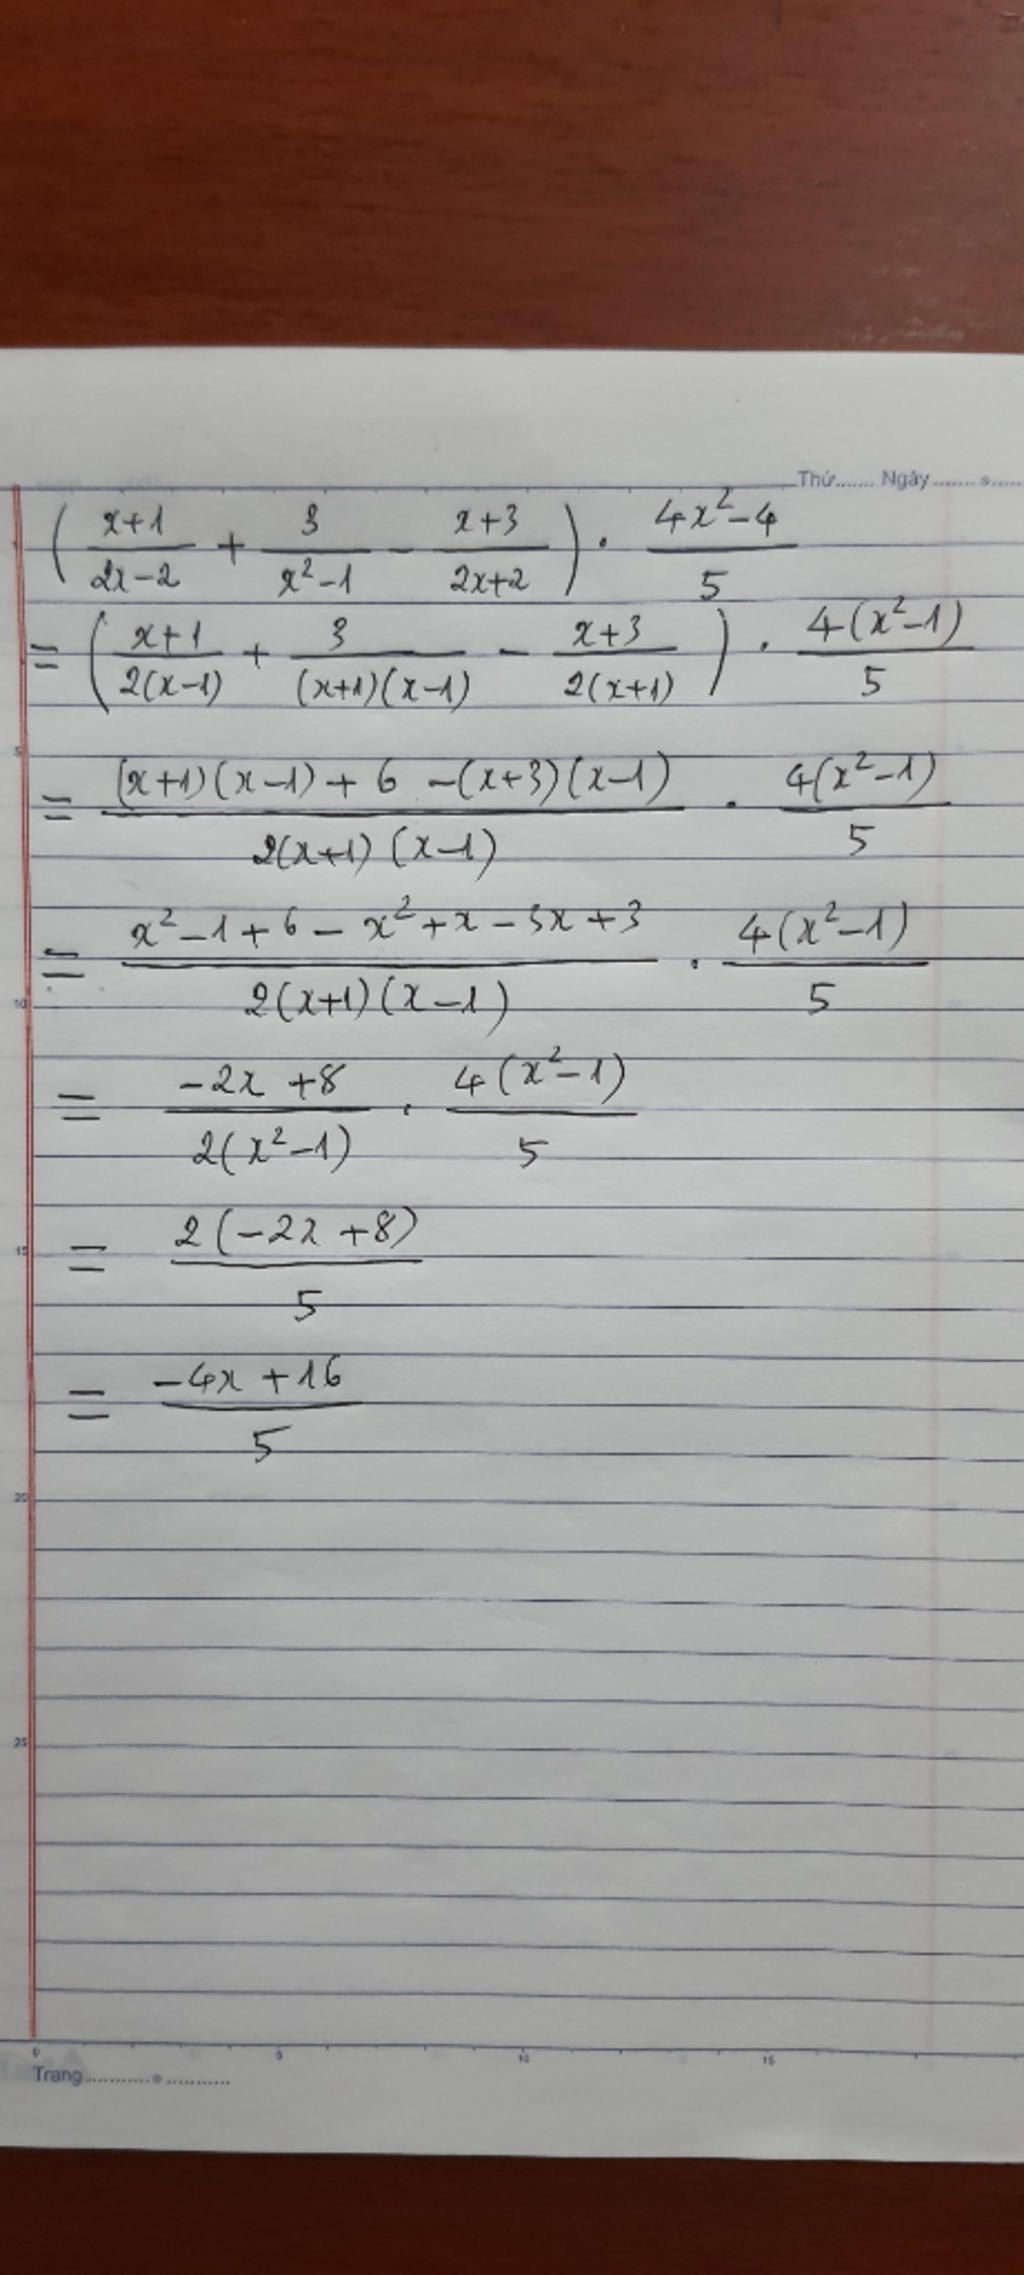 Thứ....... Ngày.......
( (x+1)/(2x-2) + 3/(x²-1) - (x+3)/(2x+2) ) . (4x²-4)/5
= ( (x+1)/(2(x-1)) + 3/((x+1)(x-1)) - (x+3)/(2(x+1)) ) . 4(x²-1)/5
= ((x+1)(x-1) + 6 -(x+3)(x-1))/(2(x+1)(x-1)) . 4(x²-1)/5
= (x²-1+6-x²+x-3x+3)/(2(x+1)(x-1)) . 4(x²-1)/5
= (-2x+8)/(2(x²-1)) . 4(x²-1)/5
= 2(-2x+8)/5
= (-4x+16)/5
5
10
15
20
25
0 5 10 15
Trang.....................